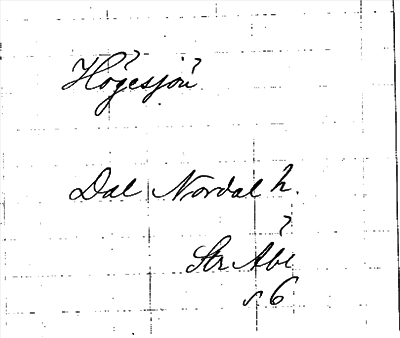 Högesjön
Dal Nordal h.
Str Åbe
s 6